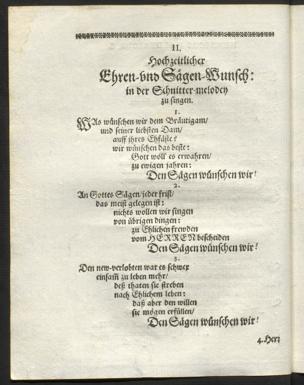 II.
Hochzeitlicher
Ehren-vnd Sägen-Wunsch:
in der Schnitter-melodey
zu singen.
1.
WAs wünschen wir dem Bräutigam/
und seiner liebsten Dam/
auff ihres Ehfäste?
wir wünschen das beste:
Gott woll' es erwahren/
zu ewigen jahren:
Den Sägen wünschen wir!
2.
An Gottes Sägen/jeder frist/
das meist gelegen ist:
nichts wollen wir singen
von übrigen dingen:
zu Ehlichen frewden
vom HERREN bescheiden
Den Sägen wünschen wir!
3.
Den new-verlobten war es schwer
einsam zu leben mehr/
deß thaten sie streben
nach Ehlichem leben:
daß aber den willen
sie mögen erfüllen/
Den Sägen wünschen wir!
4. Herz